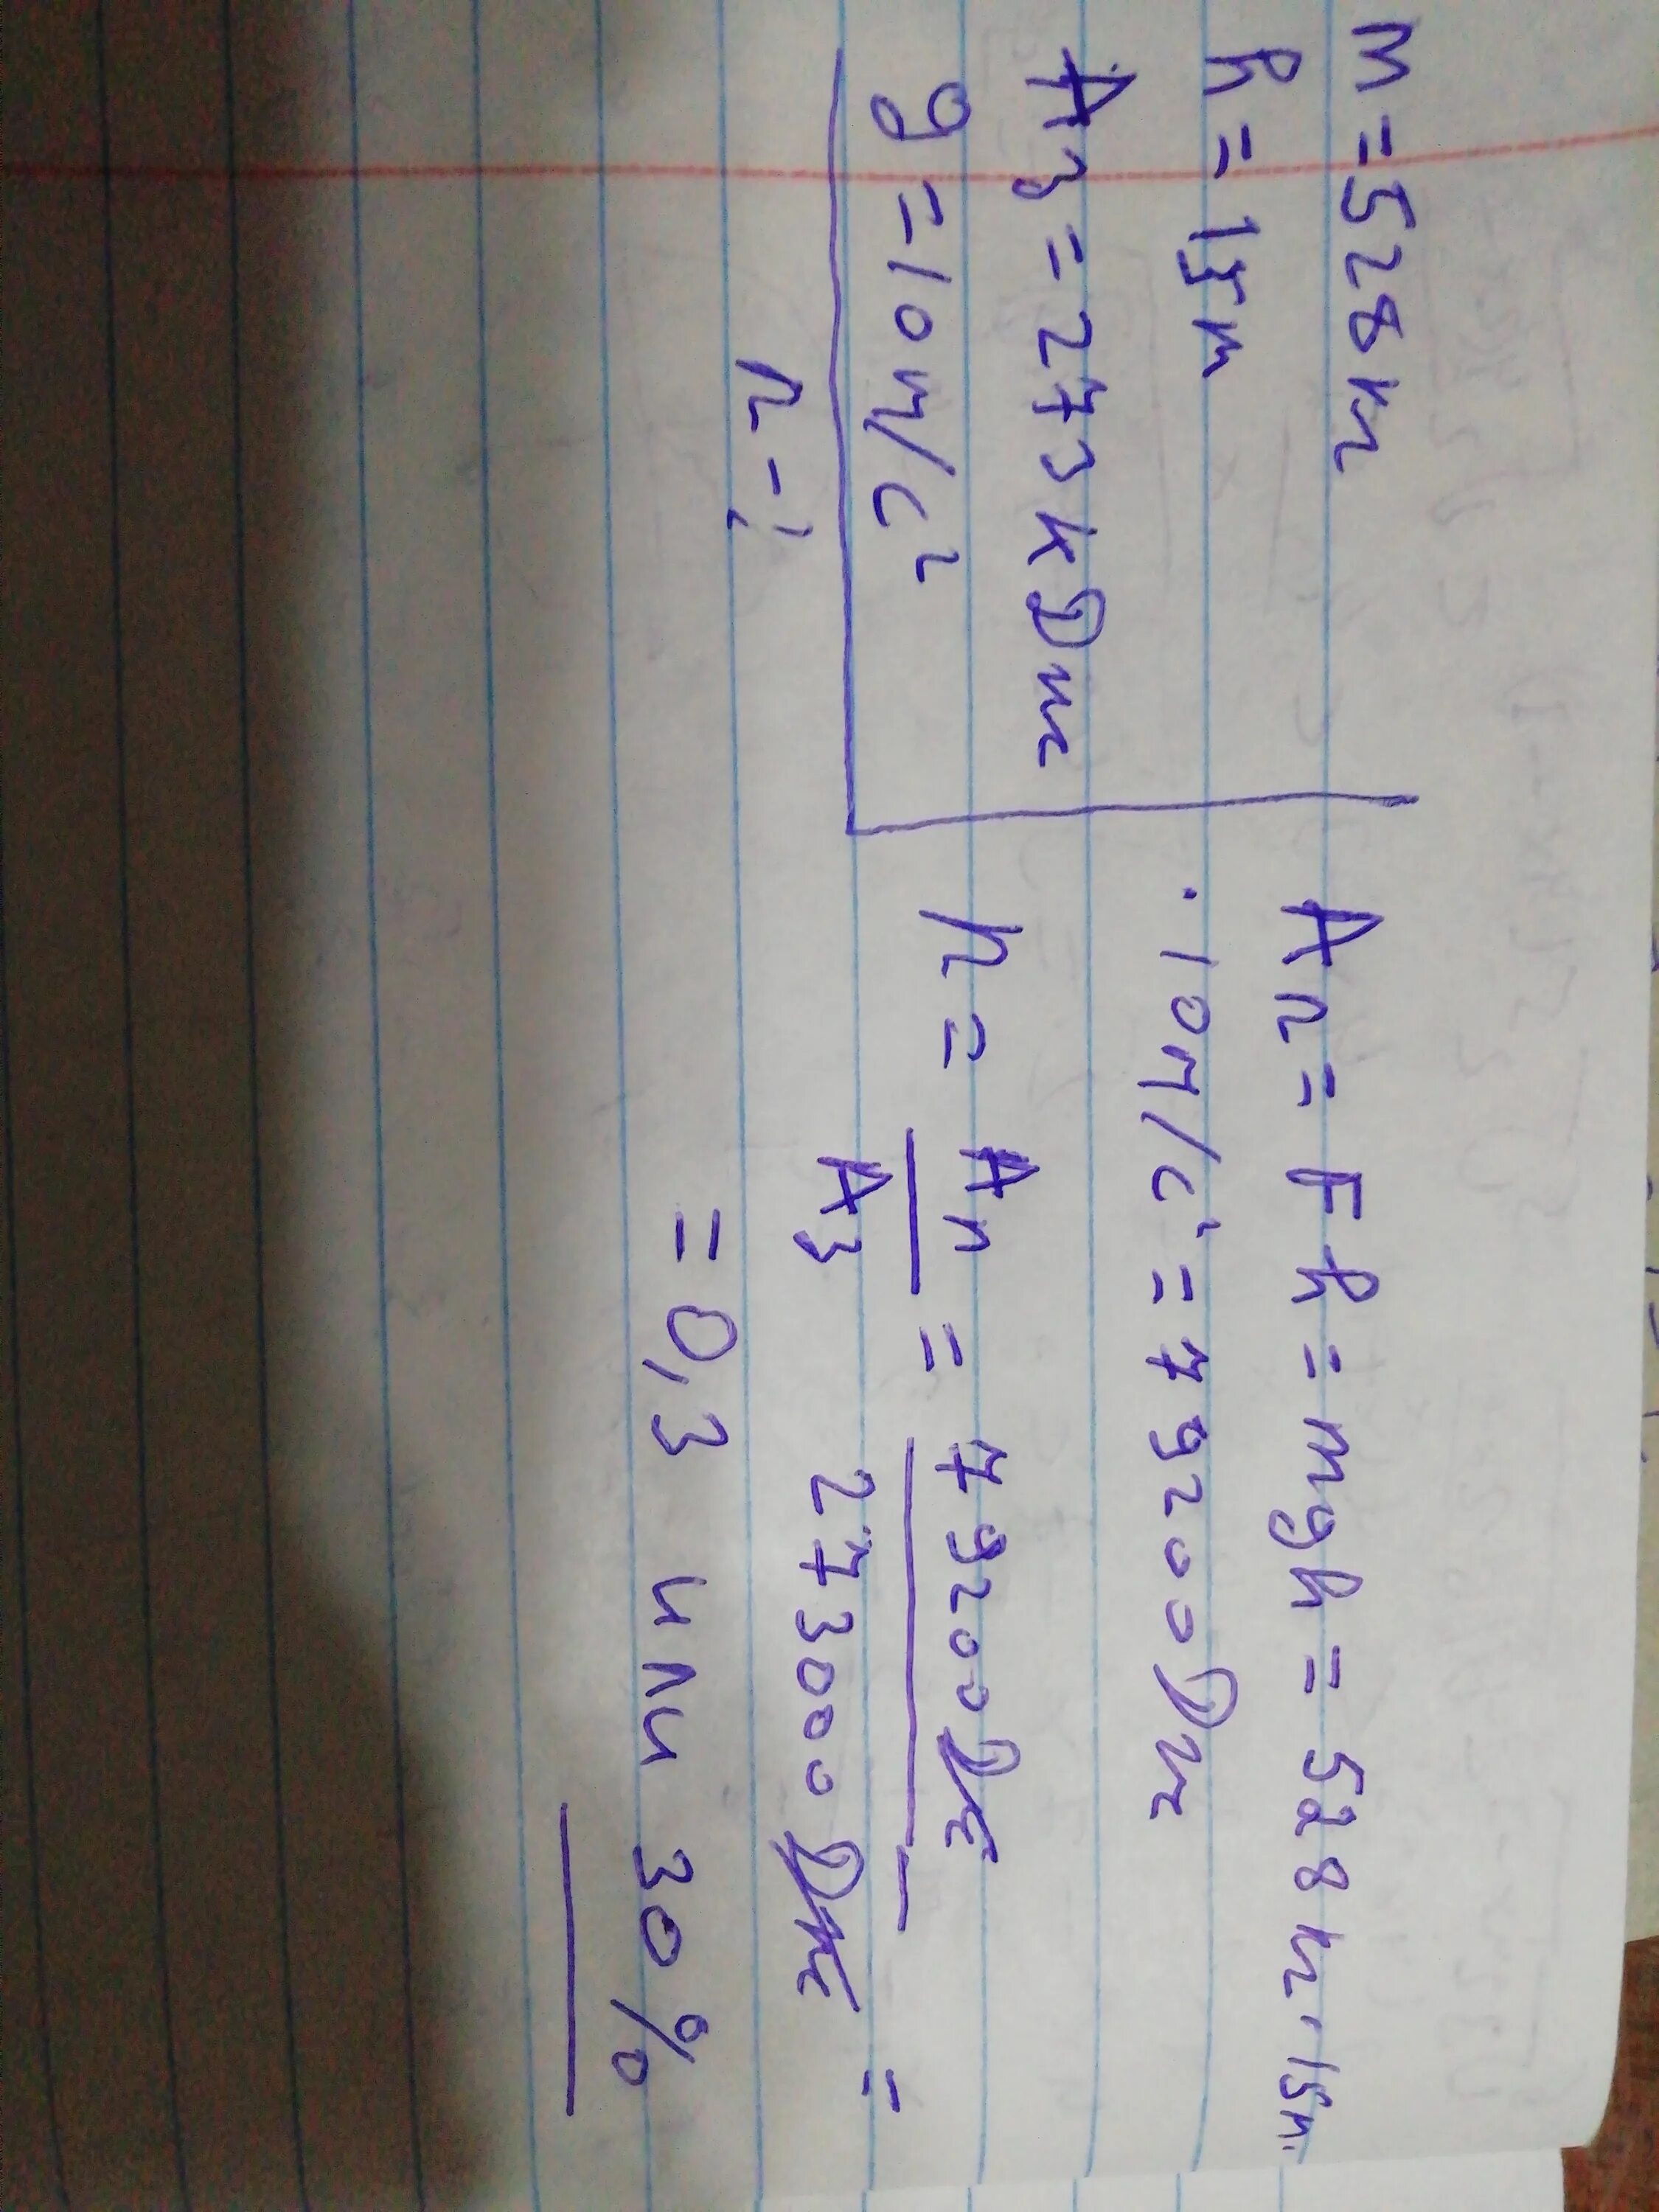 m = 528 кг
h = 15 м
Aз = 273 кДж
g = 10 м/с²
n - ?
Aп = Fh = mgh = 528 кг · 15 м ·
· 10 м/с² = 79200 Дж
n = Aп / Aз = 79200 Дж / 273000 Дж =
= 0,3 или 30%